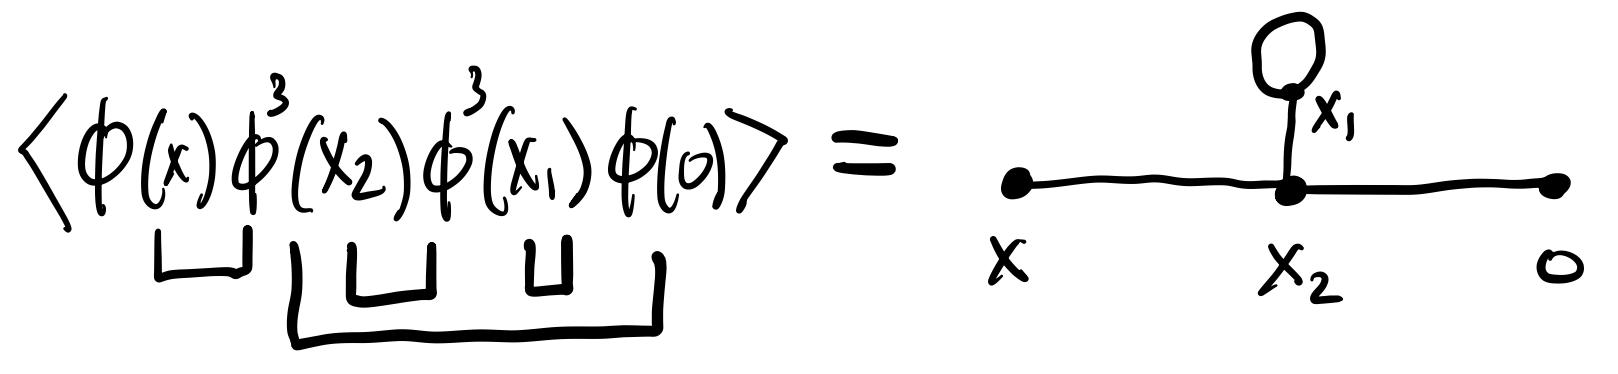 ⟨ϕ(x)ϕ³(x₂)ϕ³(x₁)ϕ(0)⟩ =
x₁
x x₂ 0